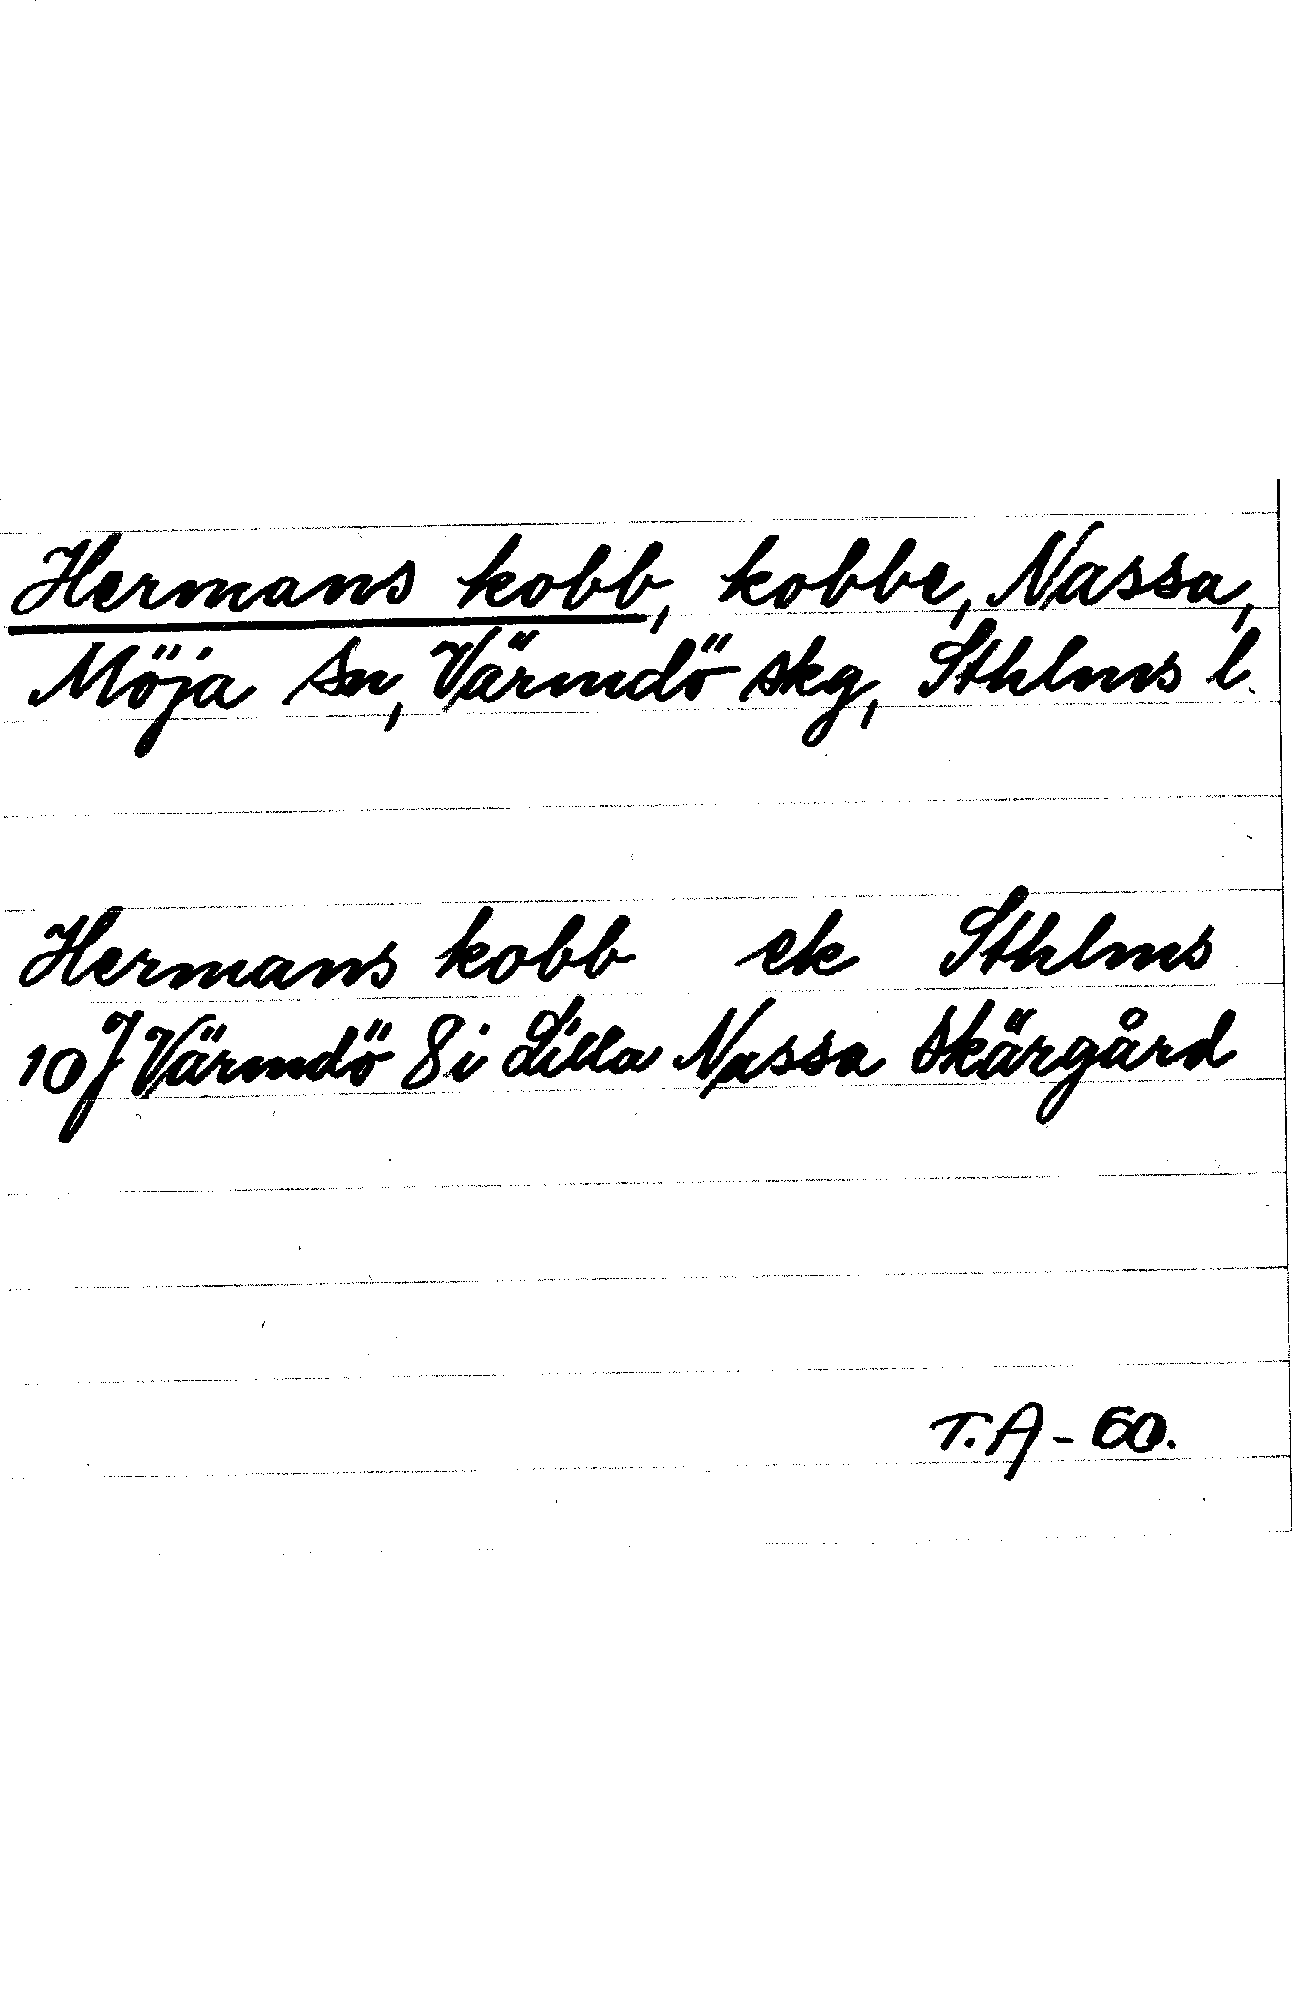 Hermans kobb, kobbe, Nassa,
Möja sn, Värmdö skg, Sthlms l.
Hermans kobb ek Sthlms
10 J Värmdö 8i Lilla Nassa skärgård
T.A-60.